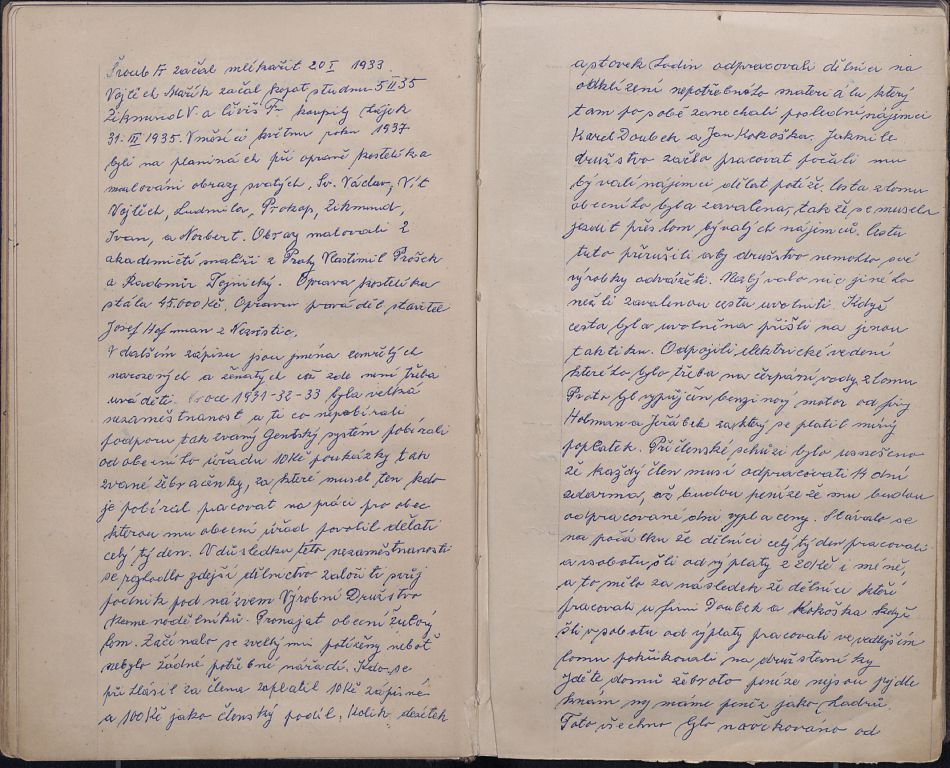 Šroub Fr začal mlékařit 20 I 1933.
Vojtěch Mařík začal kopat studnu 5 II 35
Zikmund V. a Liviš Fr. koupily
31. III 1935. V měsíci květnu roku 1937
byli na planinách při opravě kostelíka
malováni obrazy svatých, Sv. Václav, Vít
Vojtěch, Ludmila, Prokop, Zikmund,
Ivan, a Norbert. Obrazy malovali 2
akademičtí malíři z Prahy Vlastimil Prošek
a Radomír Tojnický. Oprava kostelíka
stála 45.000 Kč. Opravu prováděl stavitel
Josef Hofman z Nezvěstic.
V dalším zápisu jsou jména zemřelých
narozených a ženatých což zde není třeba
uváděti. V roce 1931-32-33 byla velká
nezaměstnanost a ti co nepobírali
podporu tak zvaný Gentský systém pobírali
od obecního úřadu 10 Kč poukázky tak
zvané žebračenky, za které musel ten kdo
je pobíral pracovat na práci pro obec
kterou mu obecní úřad povolil dělati
celý týden. V důsledku této nezaměstnanosti
se rozhodlo zdejší dělnictvo založiti svůj
podnik pod názvem Výrobní Družstvo
Kamenodělníků. Pronajat obecní žulový
lom. Začínalo se zvelkými potížemi neboť
nebylo žádné potřebné nářadí. Kdo se
přihlásil za člena zaplatil 10 Kč zápisné
a 100 Kč jako členský podíl. Kolik desítek
a stovek hodin odpracovali dělníci na
odklízení nepotřebného materiálu který
tam po sobě zanechali poslední nájimci
Karel Doubek a Jan Kokoška. Jakmile
družstvo začlo pracovat počali mu
bývalí nájimci dělat potíže. Cesta z lomu
obecního byla zavalena, tak že se musela
jezdit přes lom bývalých nájemců. Cestu
tuto přerušili aby družstvo nemohlo své
výrobky odvážeti. Nezbývalo nic jiného
nežli zavalenou cestu uvolniti. Když
cesta byla uvolněna přišli na jinou
taktiku. Odpojili elektrické vedení
kterého bylo třeba na čerpání vody z lomu
Proto byl vypůjčen benzinový motor od firmy
Hofman a Jeřábek za který se platil mírný
poplatek. Při členské schůzi bylo usnešeno
že každý člen musí odpracovati 14 dní
zdarma, až budou peníze že mu budou
odpracované dni vyplaceny. Stávalo se
na počátku že dělníci celý týden pracovali
a v sobotu šli od výplaty z 20 Kč i méně,
a to mělo za následek že dělníci kteří
pracovali u firmi Doubek a Kokoška když
šli v sobotu od výplaty pracovali ve vedlejším
lomu pokřikovali na družstevníky
jděte domů žebroto peníze nejsou pojdte
knám my máme peněz jako hadrů.
Toto všechno bylo navěkováno od